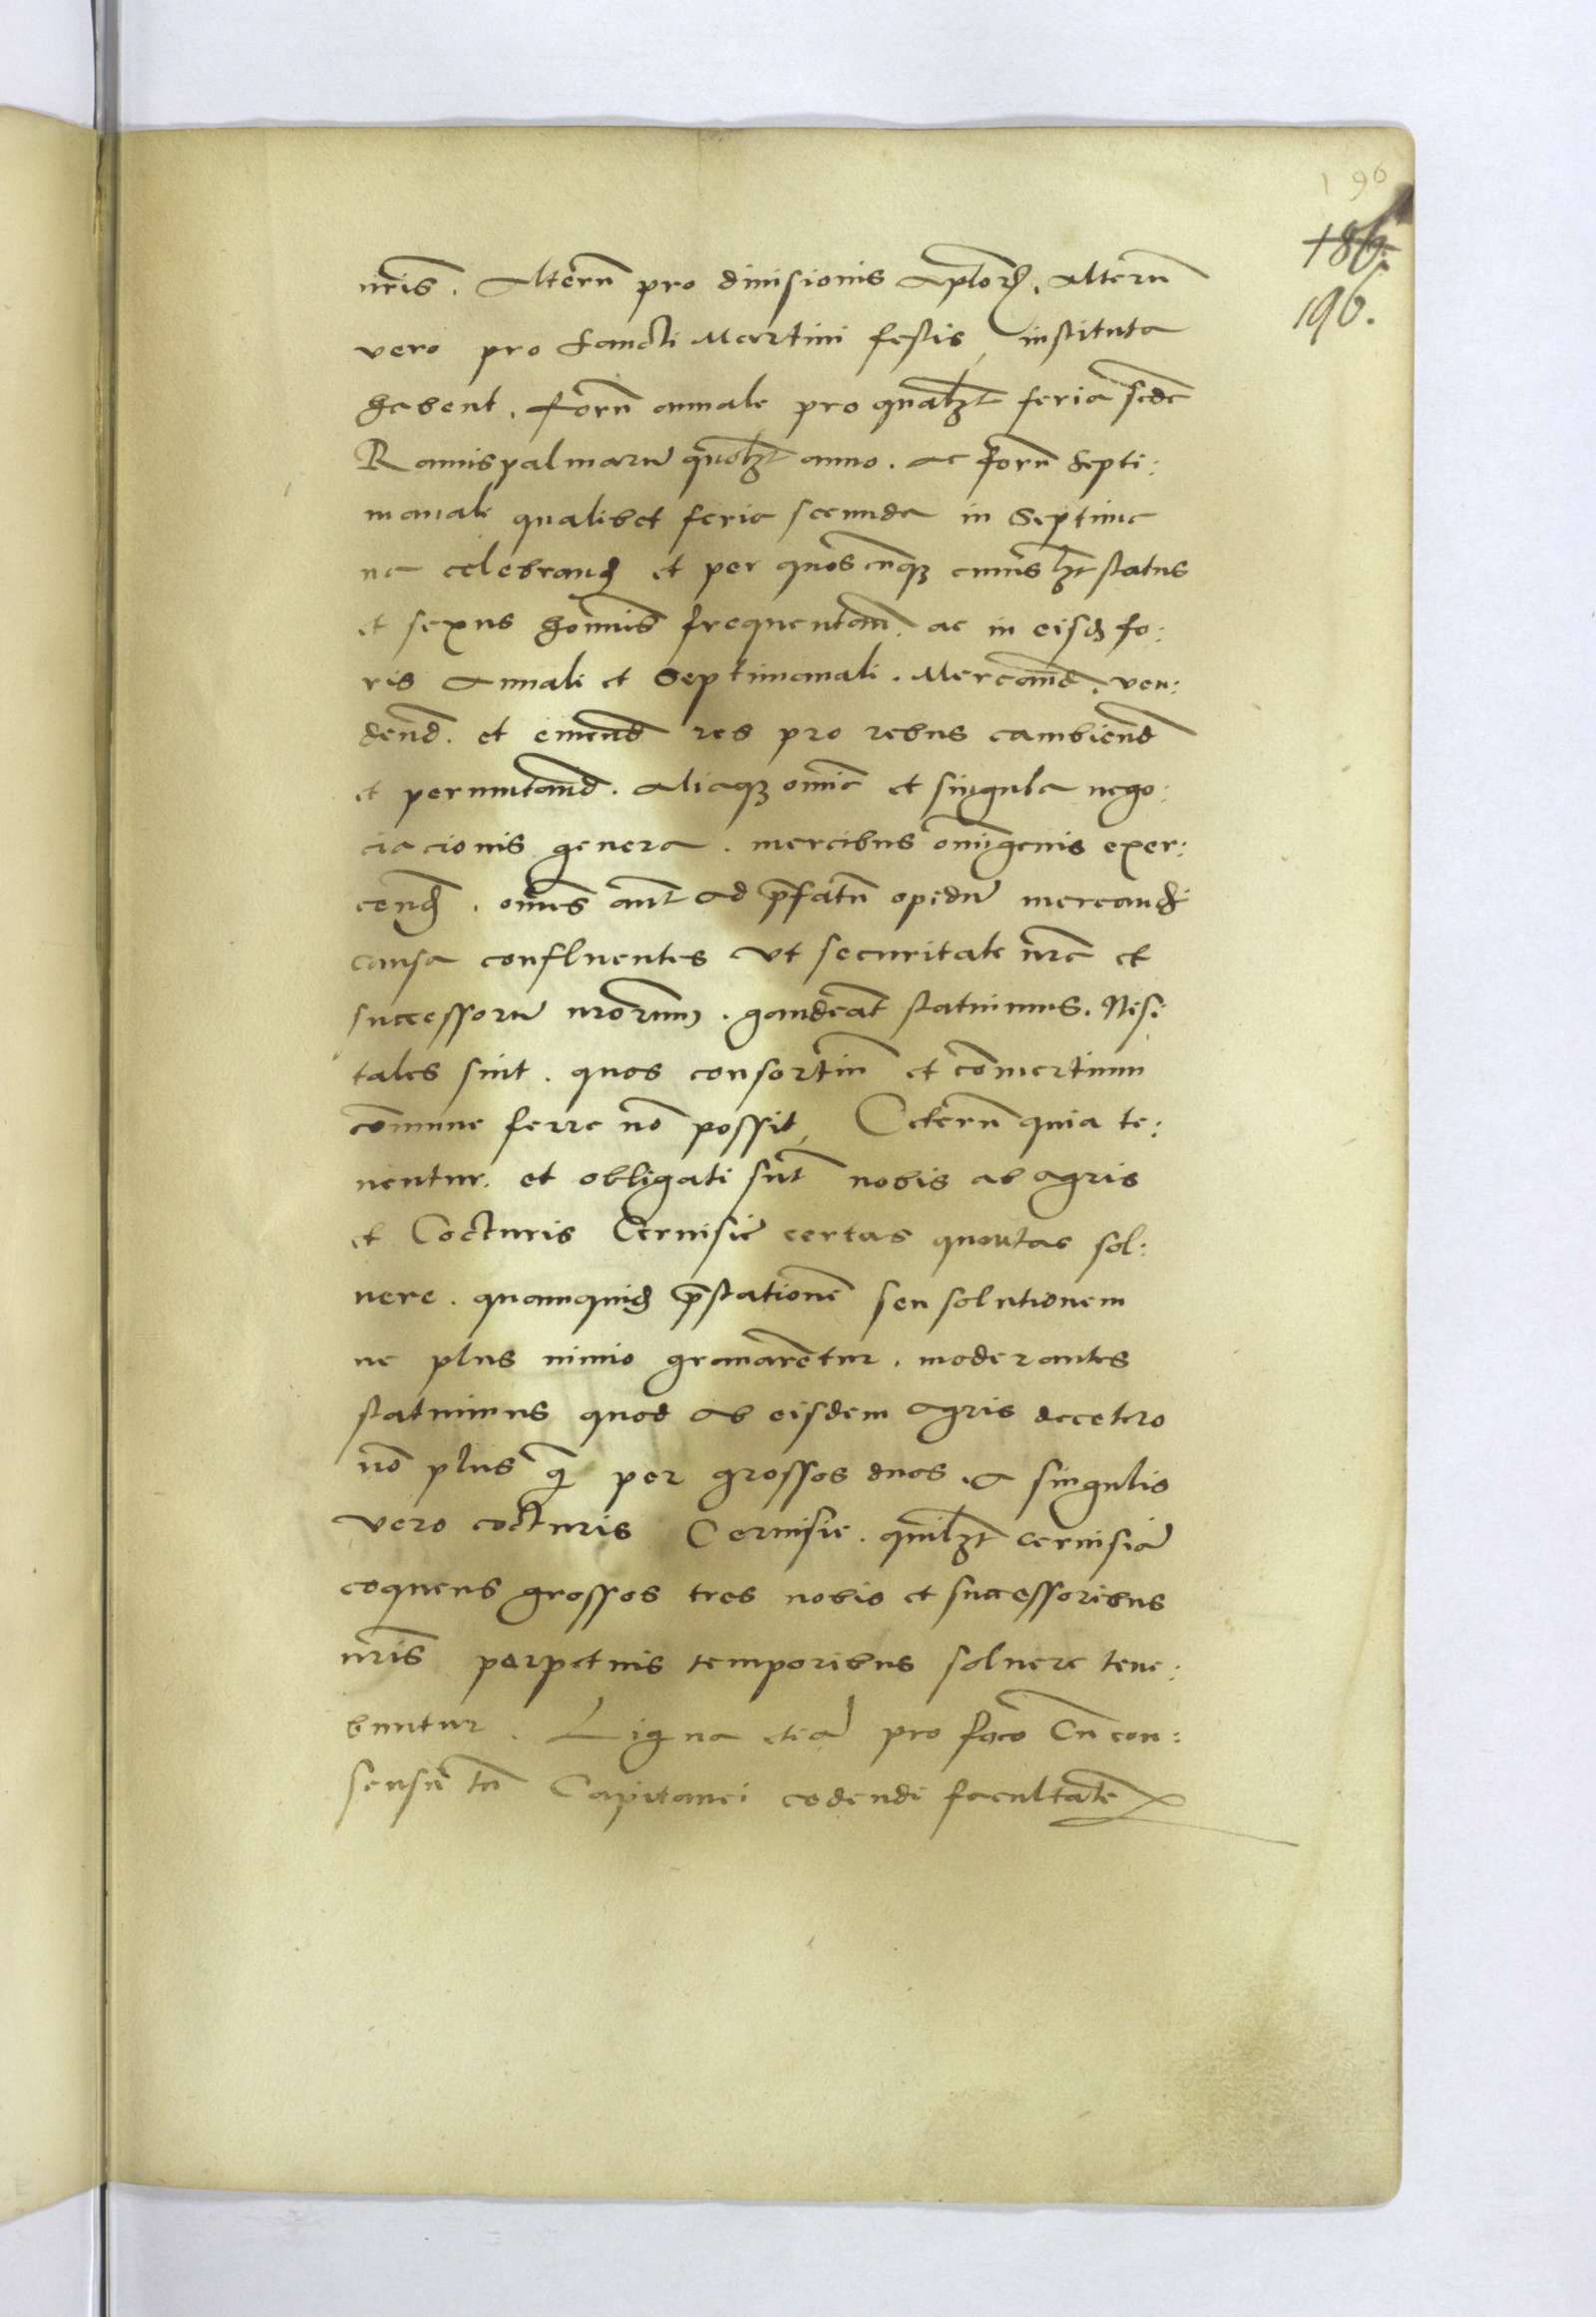 196
186.
196.
nris. Alterũ pro diuisionis Aplorꝝ. alterũ
vero pro Sancti Martini festis, instituta
habent. forũ annale pro qualꝫt feria scda
Ramispalmarũ quolꝫt anno. ac forũ Septi:
manale qualibet feria secunda in Septima
na celebranđ et per quoscũqꝫ cuiuslꝫt status
et sexus hoĩnes frequentañ. ac in eisđ fo:
ris Annali et Septimanali. Mercand. ven:
dend. et emend res pro rebus cambiend
et permutand. Aliaqꝫ omĩa et singula nego:
ciacionis genera. mercibus omĩgenis exer:
cenđ. omĩes aut ad p̃fatũ opidũ mercandi
causa confluentes vt securitate nr̃a et
successorũ nrorum. gaudeãt statuimus. Nisi
tales sint. quos consortiũ et cõmertium
cõmune ferre nõ possit, Ceterũ quia te:
nentur. et obligati sũt nobis ab agris
et Cocturis Ceruisie certas quottas sol:
uere. quamquiđ p̃stationẽ seu solutionem
ne plus nimio grauarẽtur. moderantes
statuimus quod ab eisdem agris decetero
nõ plus q̃ per grossos duos. A singulis
vero cocturis Ceruisie. quilꝫt ceruisiã
coquens grossos tres nobis et successoribus
nris perpetuis temporibus soluere tene:
buntur. Ligna etiã pro foco Cũ con:
sensu tñ Capitanei cedendi facultatẽ